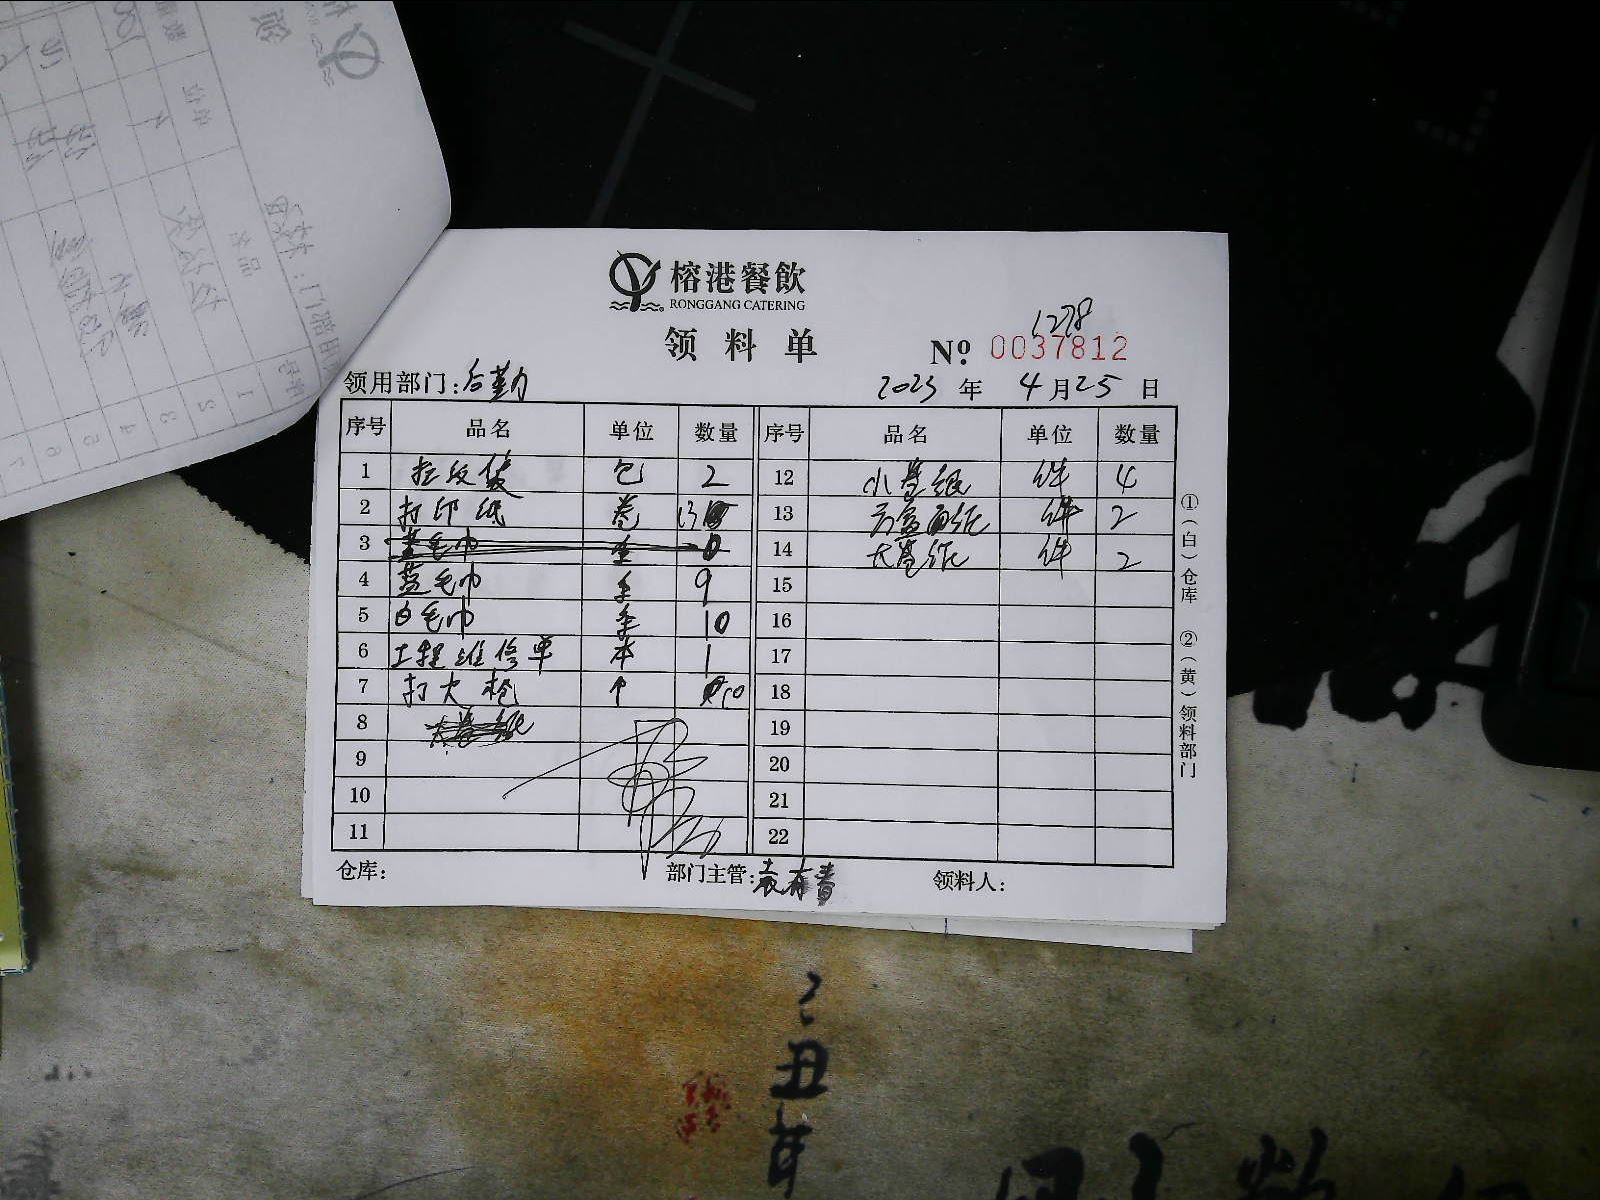 榕港餐飲
RONGGANG CATERING
领料单
1278
Nº 0037812
领用部门：后勤
2023 年 4 月 25 日
序号 品名 单位 数量 序号 品名 单位 数量
1 垃圾袋 包 2 12 小卷纸 件 4
2 打印纸 卷 13 13 方盒面纸 件 2
3 毛巾 0 14 大卷纸 件 2
4 蓝毛巾 条 9 15
5 白毛巾 条 10 16
6 工程维修单 本 1 17
7 打火枪 个 10 18
8 大卷纸 19
9 20
10 21
11 22
①（白）仓库 ②（黄）领料部门
仓库： 部门主管：袁有青 领料人：
丑
年